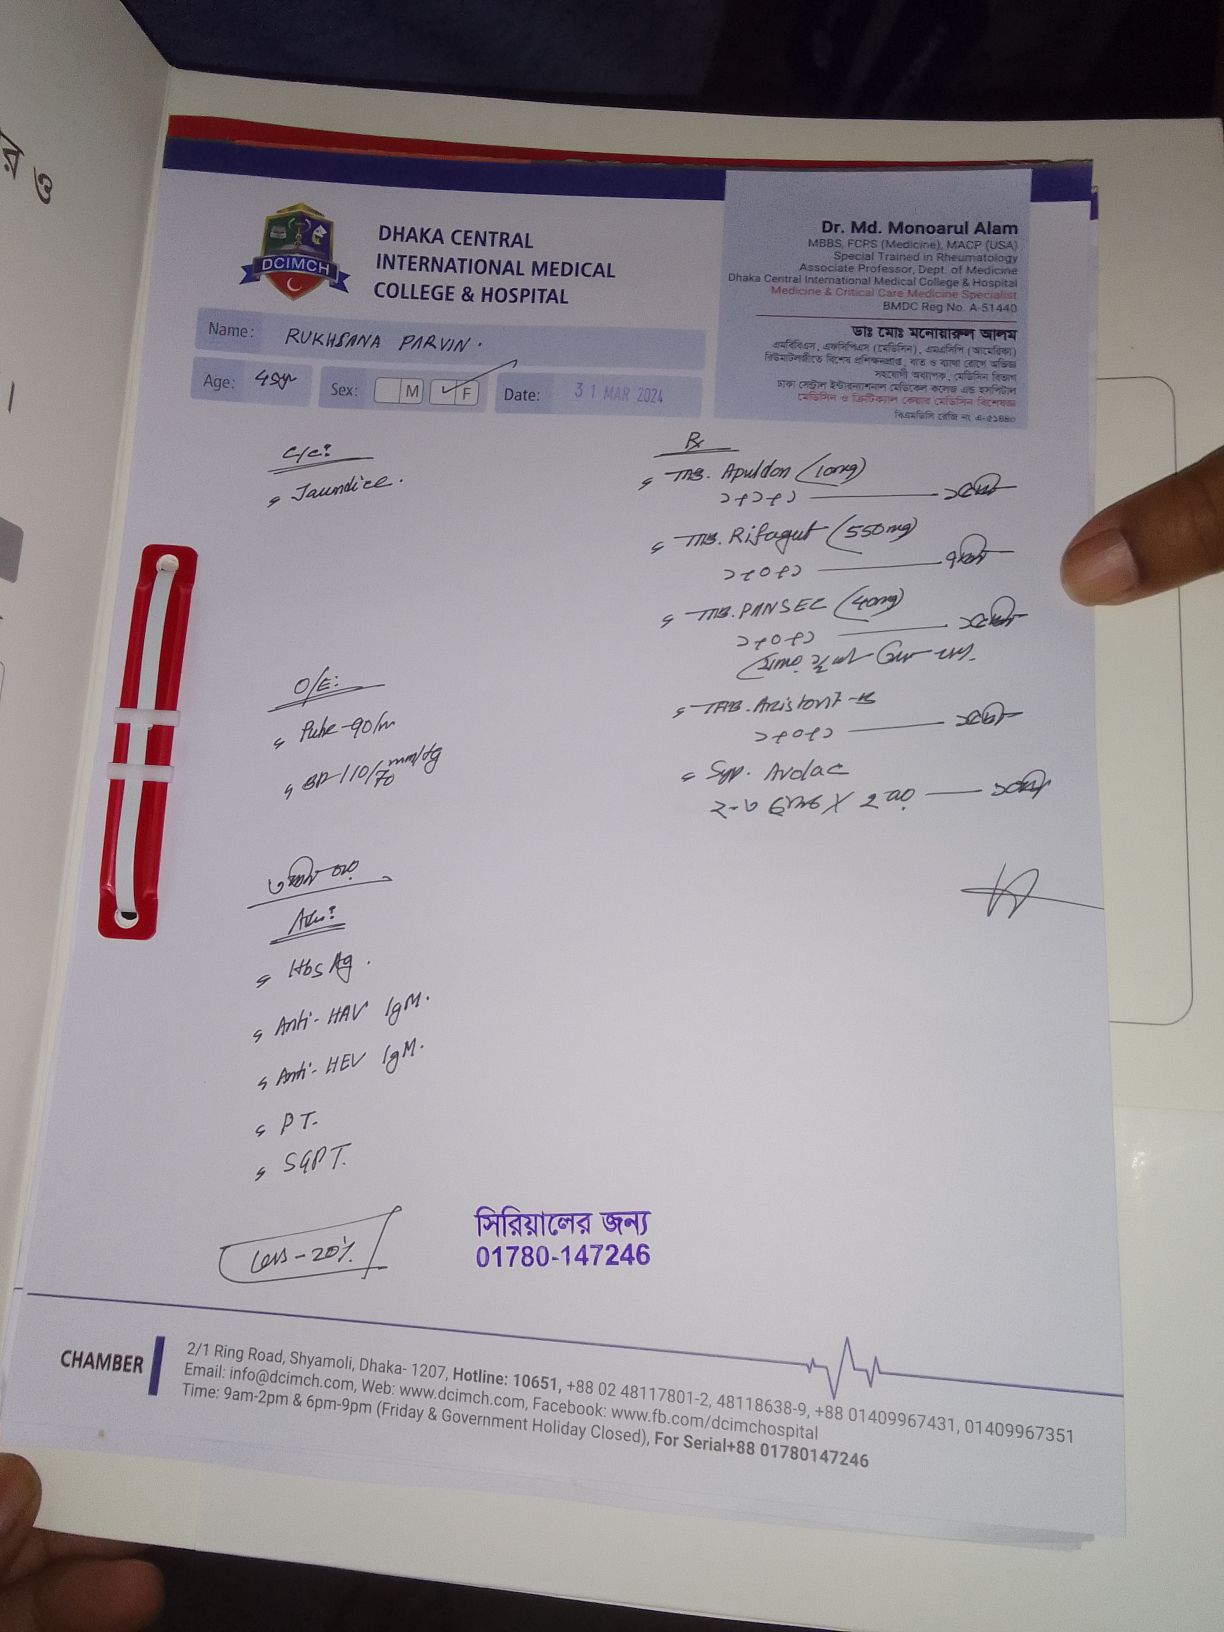 র ও
।
DCIMCH
DHAKA CENTRAL
INTERNATIONAL MEDICAL
COLLEGE & HOSPITAL
Dr. Md. Monoarul Alam
MBBS, FCPS (Medicine), MACP (USA)
Special Trained in Rheumatology
Associate Professor, Dept. of Medicine
Dhaka Central International Medical College & Hospital
Medicine & Critical Care Medicine Specialist
BMDC Reg No. A-51440
ডাঃ মোঃ মনোয়ারুল আলম
এমবিবিএস, এফসিপিএস (মেডিসিন), এমএসিপি (আমেরিকা)
রিউমাটলজীতে বিশেষ প্রশিক্ষণপ্রাপ্ত, বাত ও ব্যথা রোগে অভিজ্ঞ
সহযোগী অধ্যাপক, মেডিসিন বিভাগ
ঢাকা সেন্ট্রাল ইন্টারন্যাশনাল মেডিকেল কলেজ এন্ড হসপিটাল
মেডিসিন ও ক্রিটিক্যাল কেয়ার মেডিসিন বিশেষজ্ঞ
বিএমডিসি রেজি নং এ-৫১৪৪০
Name: RUKHSANA PARVIN.
Age: Sex: M F Date: 31 MAR 2024
C/C:
Jaundice.
O/E:
Pulse-90/m
BP-110/70 mmHg
Adv:
HbsAg.
Anti-HAV IgM.
Anti-HEV IgM.
PT.
SGPT.
Less-20%
Rx
TAB. Apuldon (10mg)
১+১+১
TAB. Rifagut (550mg)
১+০+১
TAB. PANSEC (40mg)
১+০+১
TAB. Aristovit-B
১+০+১
Syp. Avolac
২-৩ চামচ X ২ বার
সিরিয়ালের জন্য
01780-147246
CHAMBER
2/1 Ring Road, Shyamoli, Dhaka- 1207, Hotline: 10651, +88 02 48117801-2, 48118638-9, +88 01409967431, 01409967351
Email: info@dcimch.com, Web: www.dcimch.com, Facebook: www.fb.com/dcimchospital
Time: 9am-2pm & 6pm-9pm (Friday & Government Holiday Closed), For Serial+88 01780147246